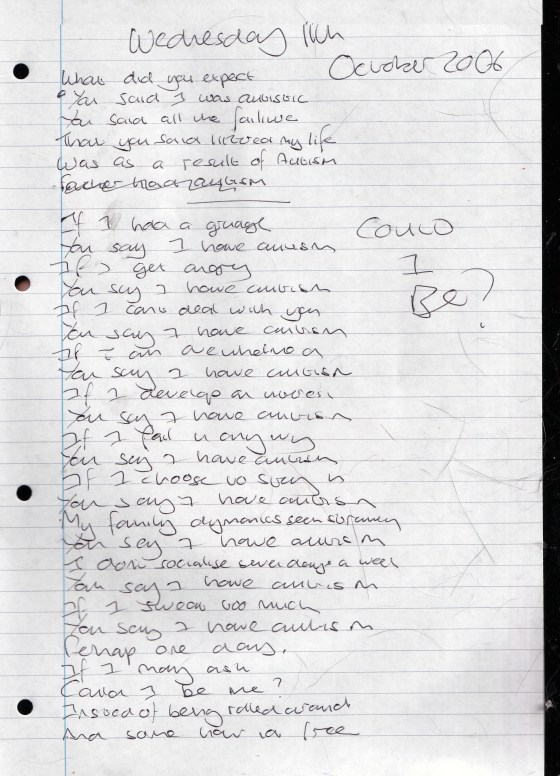 Wednesday 11th
October 2006
What did you expect
You said I was autistic
You said all the failure
That you said littered my life
Was as a result of Autism
If I had a grudge
You say I have autism
If I get angry
You say I have autism
If I cant deal with you
You say I have autism
If I am overwhelmed
You say I have autism
If I develop an interest
You say I have autism
If I fail in any way
You say I have autism
If I choose to stay in
You say I have autism
My family dynamics seem strained
You say I have autism
I dont socialise seven days a week
You say I have autism
If I swear too much
You say I have autism
Perhap one day,
If I may ask
Could I be me?
Instead of being rolled around
And some how in free
Could
I
Be?